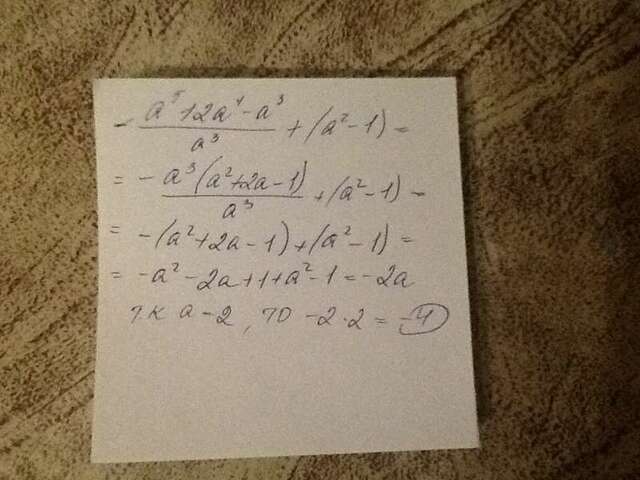 - a⁵+2a⁴-a³ / a³ + (a²-1) =
= - a³(a²+2a-1) / a³ + (a²-1) =
= -(a²+2a-1)+(a²-1) =
= -a²-2a+1+a²-1=-2a
т.к a-2, то -2·2=-4